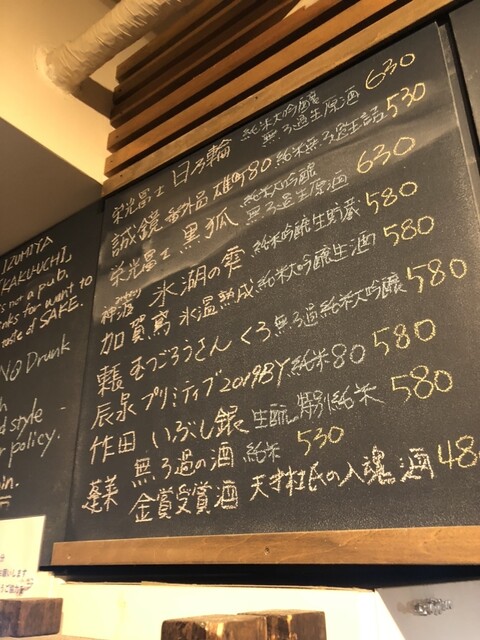 栄光冨士 日ノ輪 純米大吟醸 無ろ過生原酒 630
誠鏡 番外品 雄町80 純米無ろ過生詰 530
栄光冨士 黒狐 純米大吟醸 無ろ過生原酒 630
神渡 氷湖の雫 純米吟醸生貯蔵 580
加賀鳶 氷温熟成 純米大吟醸生酒 580
東長 むつごろうさん くろ 無ろ過純米大吟醸 580
辰泉 プリミティブ 2019BY 純米80 580
作田 いぶし銀 生酛 特別純米 580
蓬莱 無ろ過の酒 純米 530
金賞受賞酒 天才杜氏の入魂酒 48
IZUMIYA
KAKUUCHI
not a pub.
for want to
taste of SAKE.
NO Drunk
style
policy.